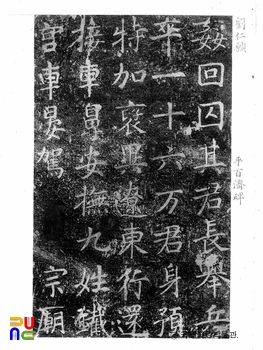 劉仁願
平百濟碑
姦回囚其君長舉兵
辛一十六万君身預
特加襃異遼東行還
接車㬰安撫九姓鐵
宮車晏駕 宗廟